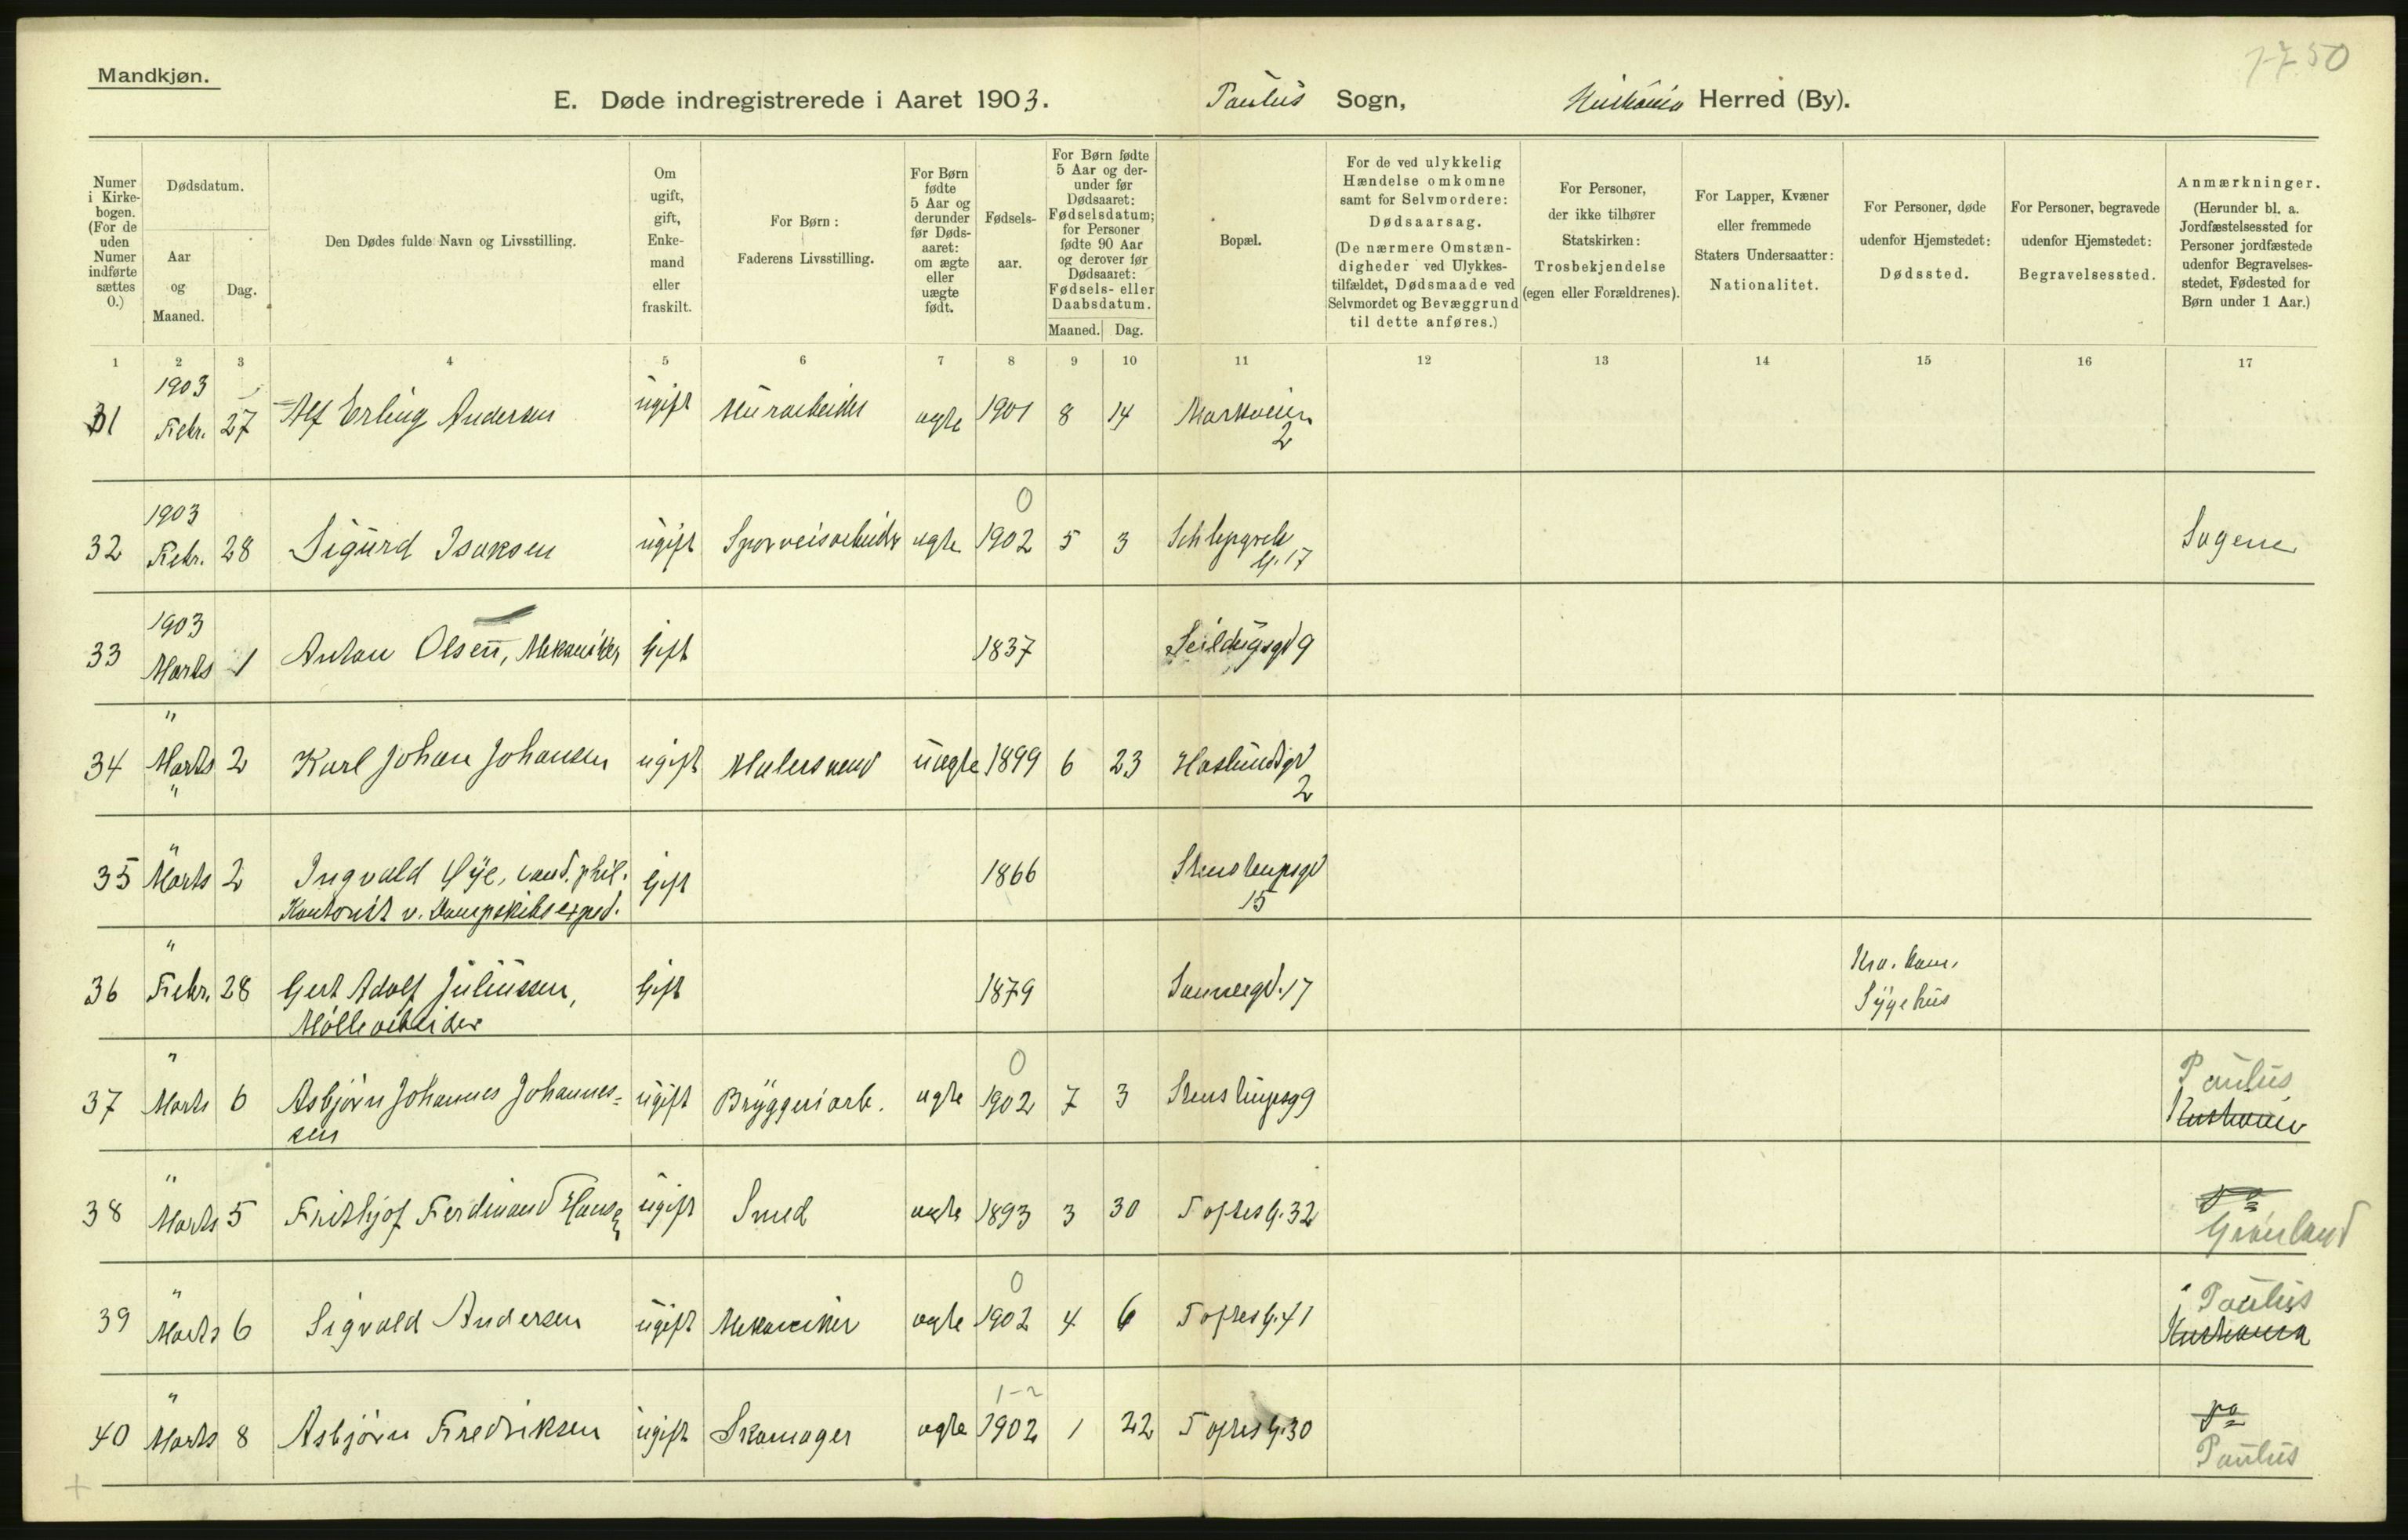 Mandkjøn.
7-7 50
E. Døde indregistrerede i Aaret 1903. Paulus Sogn, Kristiania Herred (By).
Numer i Kirke-bogen. (For de uden Numer indførte sættes 0.)
Dødsdatum.
Aar og Maaned.
Dag.
Den Dødes fulde Navn og Livsstilling.
Om ugift, gift, Enke-mand eller fraskilt.
For Børn: Faderens Livsstilling.
For Børn fødte 5 Aar og derunder før Døds-aaret: om ægte eller uægte født.
Fødsels-aar.
For Børn fødte 5 Aar og der-under før Dødsaaret: Fødselsdatum; for Personer fødte 90 Aar og derover før Dødsaaret: Fødsels- eller Daabsdatum.
Maaned. Dag.
Bopæl.
For de ved ulykkelig Hændelse omkomne samt for Selvmordere: Dødsaarsag. (De nærmere Omstæn-digheder ved Ulykkes-tilfældet, Dødsmaade ved Selvmordet og Bevæggrund til dette anføres.)
For Personer, der ikke tilhører Statskirken: Trosbekjendelse (egen eller Forældrenes).
For Lapper, Kvæner eller fremmede Staters Undersaatter: Nationalitet.
For Personer, døde udenfor Hjemstedet: Dødssted.
For Personer, begravede udenfor Hjemstedet: Begravelsessted.
Anmærkninger. (Herunder bl. a. Jordfæstelsessted for Personer jordfæstede udenfor Begravelses-stedet, Fødested for Børn under 1 Aar.)
1 2 3 4 5 6 7 8 9 10 11 12 13 14 15 16 17
1903
31 Febr. 27 Alf Erling Andersen ugift Murarbeider ægte 1901 8 14 Markveien
2
1903 0
32 Febr. 28 Sigurd Isaksen ugift Sporveisarbeider ægte 1902 5 3 Schleppgrels Sagene
G. 17
1903
33 Marts 1 Anton Olsen, Mekaniker Gift 1837 Seildugsgd 9
"
34 Marts 2 Karl Johan Johansen ugift Malersvend uægte 1899 6 23 Haslundsgd
" 2
"
35 Marts 2 Ingvald Øye, cand. phil. Gift 1866 Stenstrupsgd
Kontorist v. Dampskibsexped. 15
"
36 Febr. 28 Gert Adolf Juliussen, Gift 1879 Sannergd. 17 Kra. kom.
Møllearbeider Sygehus
" 0 Paulus
37 Marts 6 Asbjørn Johannes Johannes= ugift Bryggeriarb. ægte 1902 7 3 Stenstrupsg 9 Kristiania
sen
"
38 Marts 5 Frithjof Ferdinand Hansen ugift Smed ægte 1893 3 30 Toftes G. 32 do
Grønland
" 0 Paulus
39 Marts 6 Sigvald Andersen ugift Mekaniker ægte 1902 4 6 Toftes G. 41 Kristiania
" 1-2
40 Marts 8 Asbjørn Fredriksen ugift Skomager ægte 1902 1 22 Toftes G. 30 do
Paulus
+